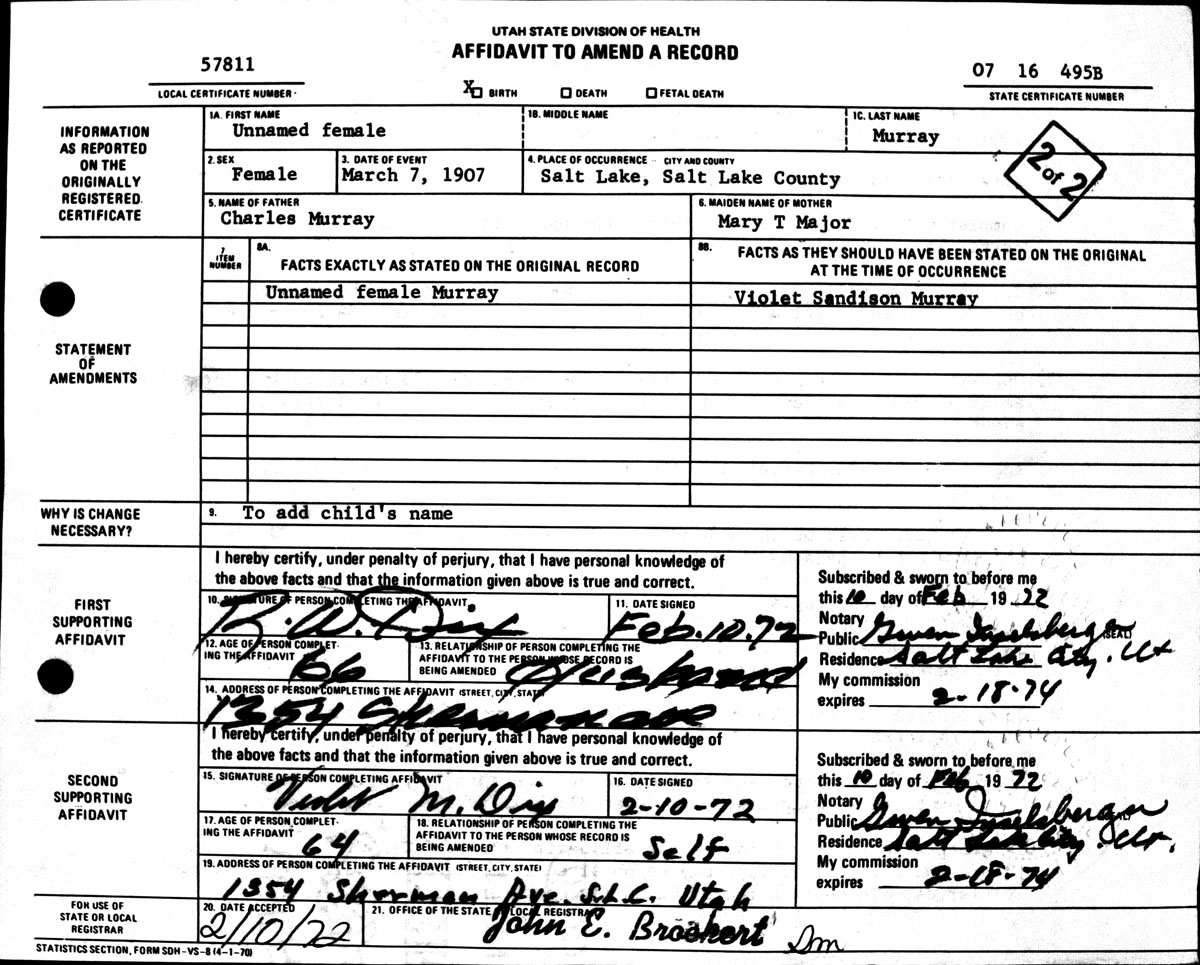 UTAH STATE DIVISION OF HEALTH
AFFIDAVIT TO AMEND A RECORD
57811
LOCAL CERTIFICATE NUMBER
X BIRTH DEATH FETAL DEATH
07 16 495B
STATE CERTIFICATE NUMBER
INFORMATION AS REPORTED ON THE ORIGINALLY REGISTERED CERTIFICATE
1A. FIRST NAME
Unnamed female
1B. MIDDLE NAME
1C. LAST NAME
Murray
2 of 2
2. SEX
Female
3. DATE OF EVENT
March 7, 1907
4. PLACE OF OCCURRENCE - CITY AND COUNTY
Salt Lake, Salt Lake County
5. NAME OF FATHER
Charles Murray
6. MAIDEN NAME OF MOTHER
Mary T Major
STATEMENT OF AMENDMENTS
7. ITEM NUMBER
8A. FACTS EXACTLY AS STATED ON THE ORIGINAL RECORD
8B. FACTS AS THEY SHOULD HAVE BEEN STATED ON THE ORIGINAL
AT THE TIME OF OCCURRENCE
Unnamed female Murray
Violet Sandison Murray
WHY IS CHANGE NECESSARY?
9. To add child's name
FIRST SUPPORTING AFFIDAVIT
I hereby certify, under penalty of perjury, that I have personal knowledge of
the above facts and that the information given above is true and correct.
10. SIGNATURE OF PERSON COMPLETING THE AFFIDAVIT
R. W. Dix
11. DATE SIGNED
Feb. 10. 72
12. AGE OF PERSON COMPLETING THE AFFIDAVIT
66
13. RELATIONSHIP OF PERSON COMPLETING THE
AFFIDAVIT TO THE PERSON WHOSE RECORD IS
BEING AMENDED
Husband
14. ADDRESS OF PERSON COMPLETING THE AFFIDAVIT (STREET, CITY, STATE)
1354 Sherman ave
Subscribed & sworn to before me
this 10 day of Feb 1972
Notary
Public Gwen Inselsberger (SEAL)
Residence Salt Lake City, Ut
My commission
expires 2-18-74
SECOND SUPPORTING AFFIDAVIT
I hereby certify, under penalty of perjury, that I have personal knowledge of
the above facts and that the information given above is true and correct.
15. SIGNATURE OF PERSON COMPLETING AFFIDAVIT
Violet M. Dix
16. DATE SIGNED
2-10-72
17. AGE OF PERSON COMPLETING THE AFFIDAVIT
64
18. RELATIONSHIP OF PERSON COMPLETING THE
AFFIDAVIT TO THE PERSON WHOSE RECORD IS
BEING AMENDED
Self
19. ADDRESS OF PERSON COMPLETING THE AFFIDAVIT (STREET, CITY, STATE)
1354 Sherman Ave. S.L.C. Utah
Subscribed & sworn to before me
this 10 day of Feb 1972
Notary
Public Gwen Inselsberger
Residence Salt Lake City, Ut.
My commission
expires 2-18-74
FOR USE OF STATE OR LOCAL REGISTRAR
20. DATE ACCEPTED
2/10/72
21. OFFICE OF THE STATE OR LOCAL REGISTRAR
John E. Brockert Dm
STATISTICS SECTION, FORM SDH-VS-8 (4-1-70)